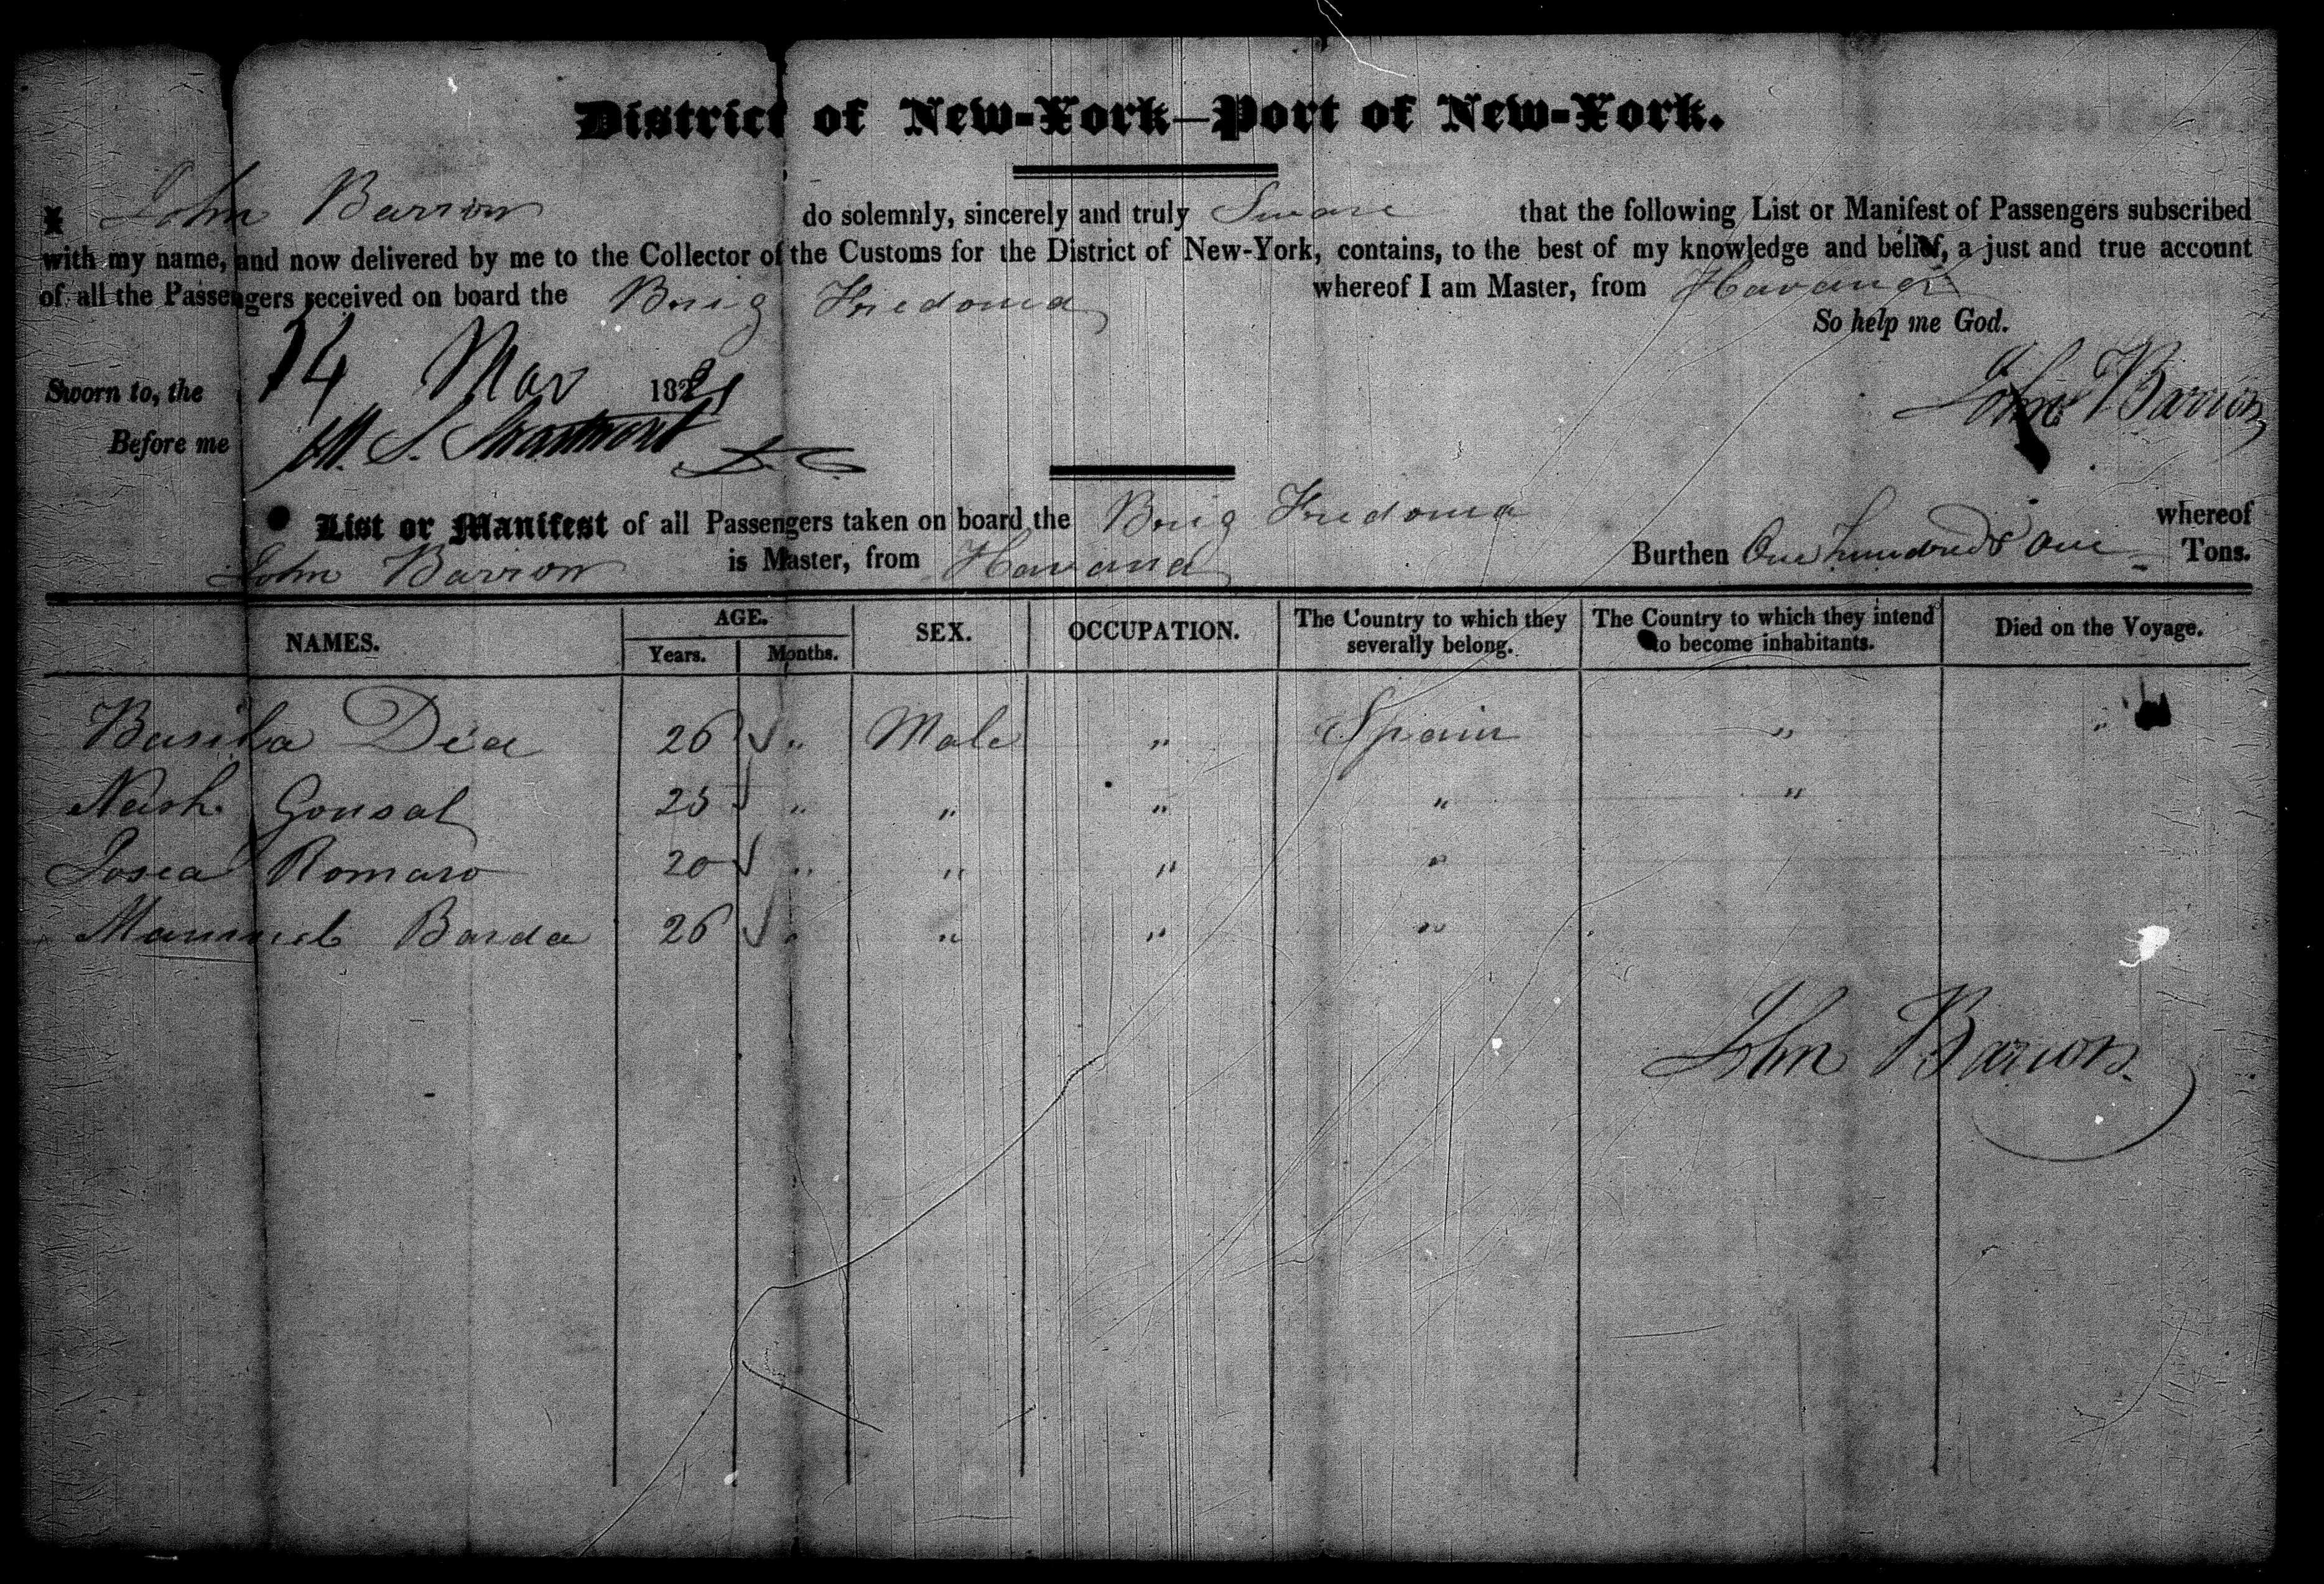 District of New-York—Port of New-York.
I John Barron do solemnly, sincerely and truly Sware that the following List or Manifest of Passengers subscribed
with my name, and now delivered by me to the Collector of the Customs for the District of New-York, contains, to the best of my knowledge and belief, a just and true account
of all the Passengers received on board the Brig Fredonia whereof I am Master, from Havana
So help me God.
Sworn to, the 14 182
John Barron
Before me M. S.
List or Manifest of all Passengers taken on board the Brig Fredonia whereof
John Barron is Master, from Havana Burthen One hundred & one Tons.
NAMES. AGE. Years. Months. SEX. OCCUPATION. The Country to which they severally belong. The Country to which they intend to become inhabitants. Died on the Voyage.
Basila Dea 26 " Male " Spain " "
Gonsal 25 " " " " "
Josea Romaro 20 " " " "
Manuel Barda 26 " " " "
John Barron